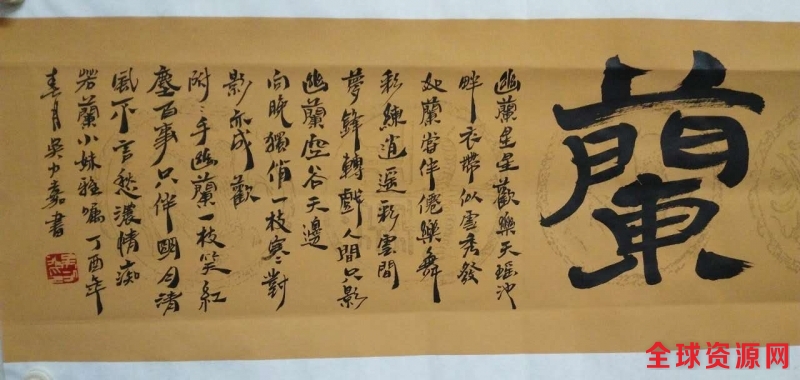 蘭
幽蘭星星歡樂天瑶池
畔衣帶似雪秀發
如蘭常伴倦樂舞
彩練逍遥彩雲間
夢鋒轉戲人間只影
幽蘭空谷天邊
向晚獨俏一枝寒對
影亦成歡
附:手幽蘭一枝笑紅
塵百事只伴明月清
風不言愁濃情痴
若蘭小妹雅囑丁酉年
春月吳力嘉書
全球资源网